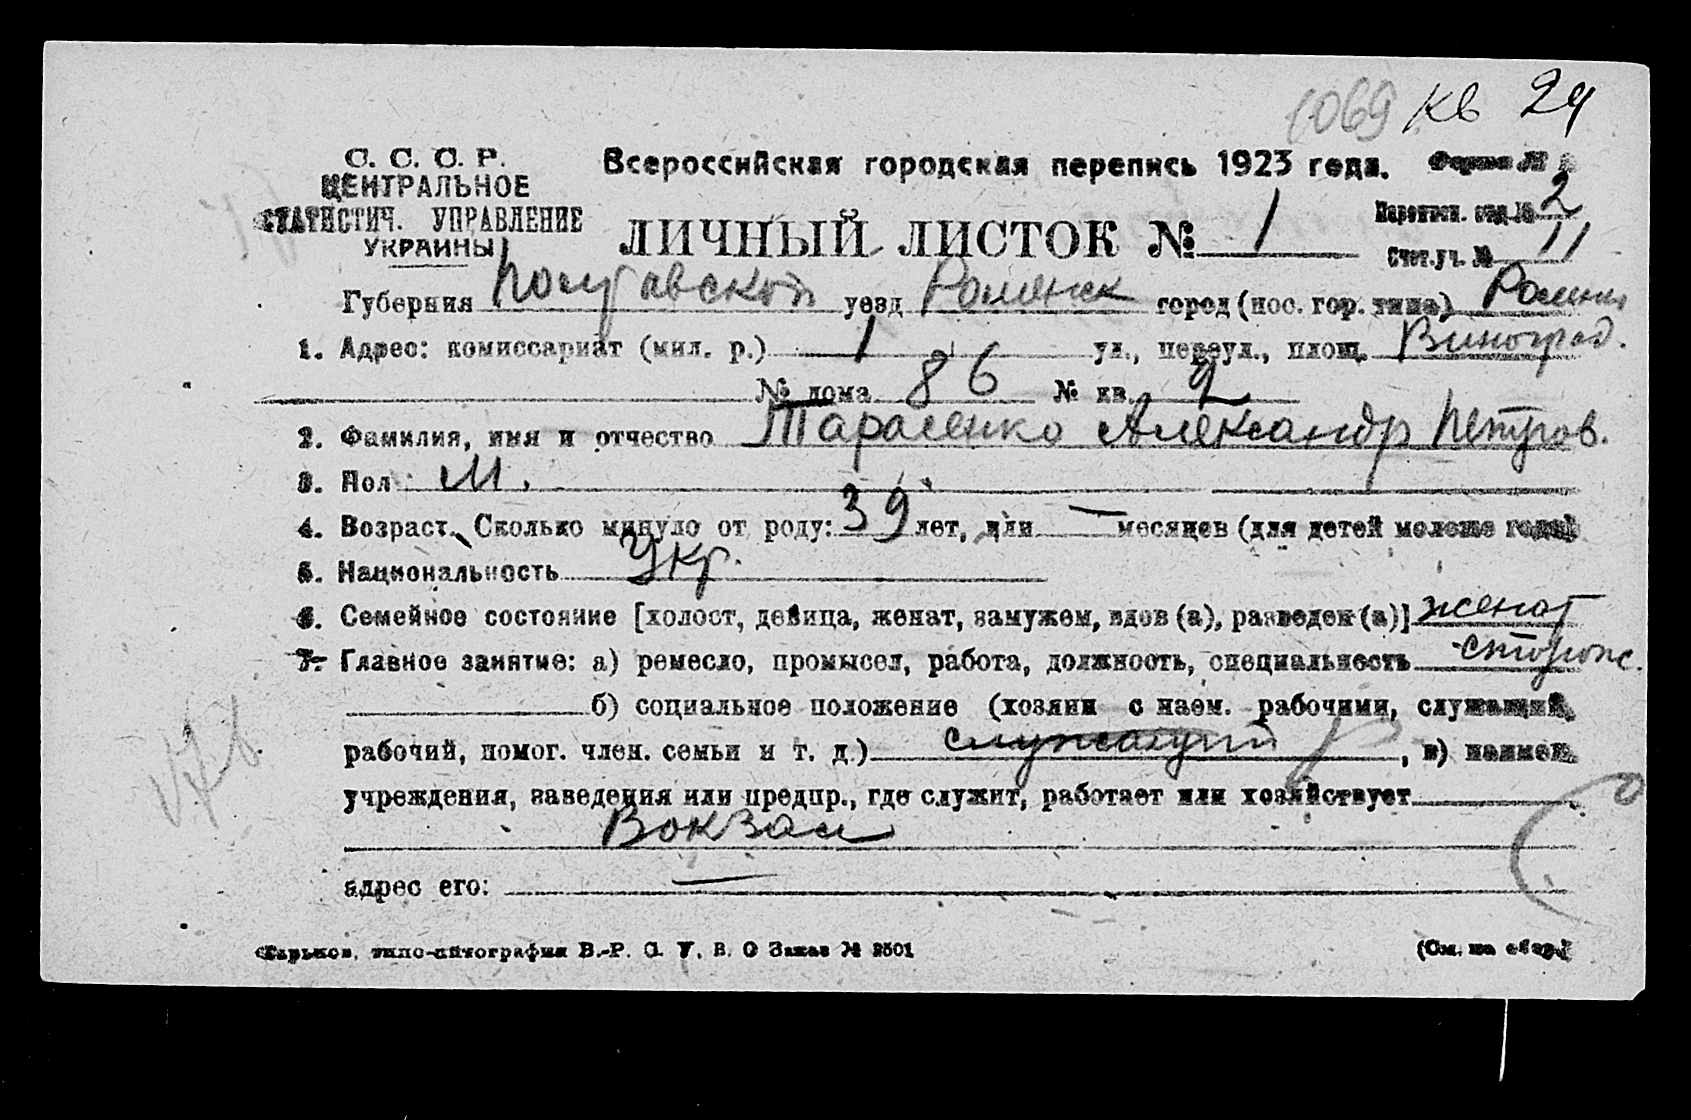 1069 кв 24
С. С. С. Р.
ЦЕНТРАЛЬНОЕ
СТАТИСТИЧ. УПРАВЛЕНИЕ
УКРАИНЫ
Всероссийская городская перепись 1923 года. Форма №
ЛИЧНЫЙ ЛИСТОК № 1
Переписн. отд. № 2
Счет. уч. № 11
Губерния Полтавской уезд Роменск город (пос. гор. типа) Ромны
1. Адрес: комиссариат (мил. р.) 1 ул., переул., площ. Виноград.
№ дома 86 № кв. 2
2. Фамилия, имя и отчество Тарасенко Александр Петров.
3. Пол М.
4. Возраст. Сколько минуло от роду: 39 лет, или — месяцев (для детей моложе года)
5. Национальность Укр.
6. Семейное состояние [холост, девица, женат, замужем, вдов (а), разведен (а)] женат
7. Главное занятие: а) ремесло, промысел, работа, должность, специальность сторож.
б) социальное положение (хозяин с наем. рабочими, служащий,
рабочий, помог. член. семьи и т. д.) служащий, в) наимен.
учреждения, заведения или предпр., где служит, работает или хозяйствует
Вокзал
адрес его: —
Харьков, типо-литография В.-Р. С. У. В. О Заказ № 2501
(См. на обор.)